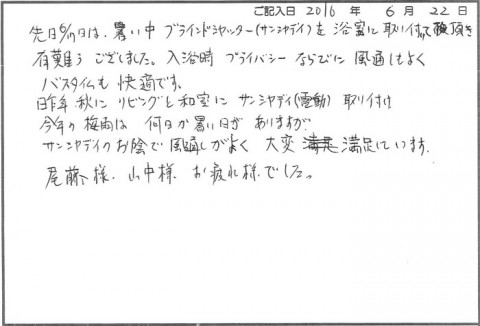 ご記入日 2016 年 6 月 22 日
先日6/17日は、暑い中 ブラインドシャッター(サンシャディ)を 浴室に 取り付けて頂き
有難う ございました。入浴時 プライバシー ならびに 風通しもよく
バスタイムも 快適です。
昨年 秋に リビングと和室に サンシャディ(電動) 取り付け
今年の 梅雨は 何日か暑い日が ありますが
サンシャディのお陰で 風通しがよく 大変 満足しています。
尾藤様、山中様、お疲れ様でした。